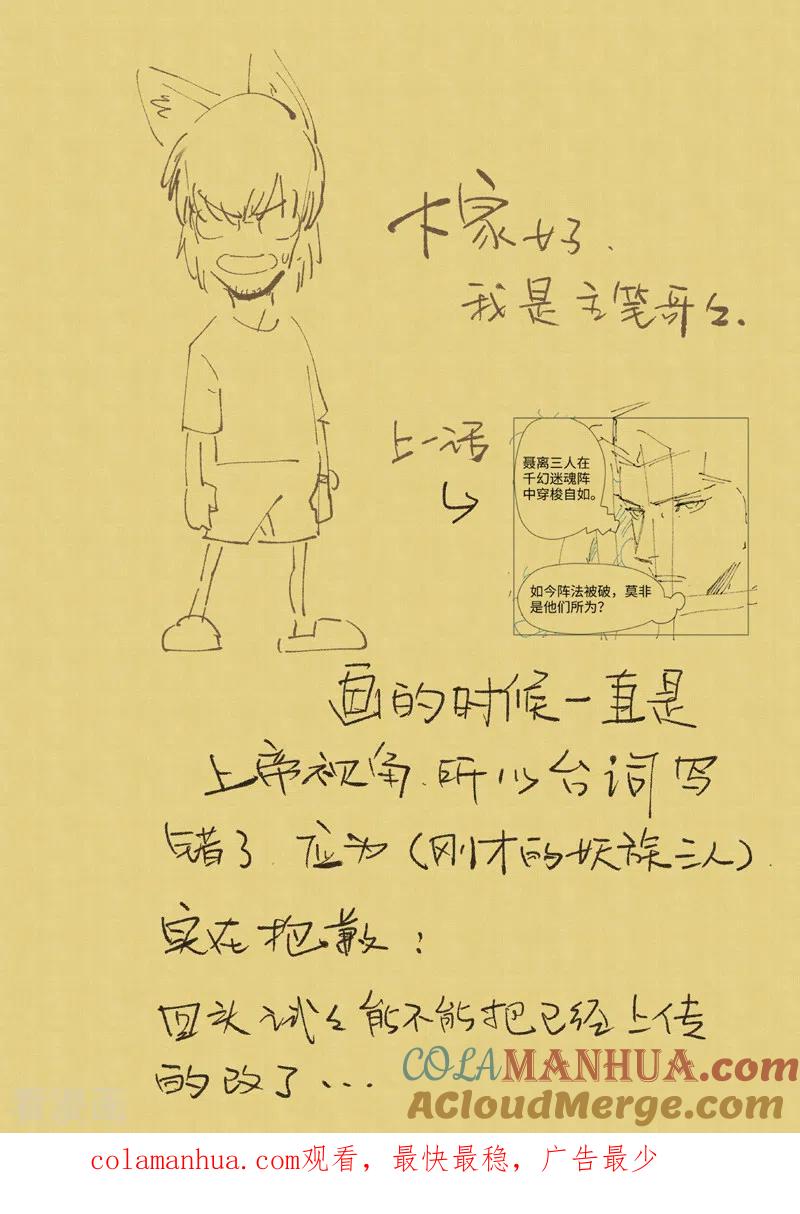 大家好.
我是主笔哥々.
上一话
聂离三人在
千幻迷魂阵
中穿梭自如。
如今阵法被破，莫非
是他们所为？
画的时候一直是
上帝视角.所以台词写
错了.应为(刚才的妖族三人).
实在抱歉;
回头试々能不能把已经上传
的改了...
COLAMANHUA.com
ACloudMerge.com
看漫画
colamanhua.com观看，最快最稳，广告最少